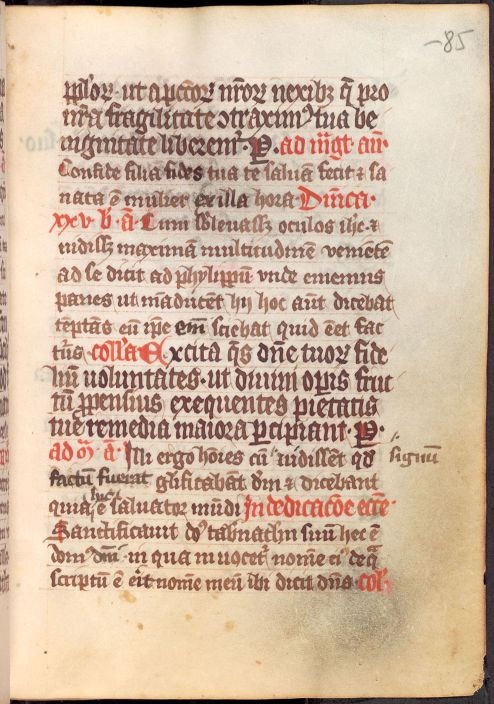 -85
pplor. ut a pctor nror nexibz q̄ pro
nra fragilitate ↄtraxim9 tua be
nignitate liberem̄. P. ad m̄gt. an̄.
Confide filia fides tua te saluā fecit ⁊ sa
nata ē mulier ex illa hora. Dn̄ica.
xxv. b. ā. Cum sbleuassz oculos ihc ⁊
uidissz maximam multitudinē veniētē
ad se dicit ad phylippū vnde ememus
panes ut manducēt hij hoc aūt dicebat
teptās eū ip̄e em̄ sciebat quid eēt fac
turus. coll'a Excita qs dn̄e tuor fide
liū uoluntates. ut diuini opis fruc
tū ppensius exequentes pietatis
tue remedia maiora pcipiant. P.
ad m̄. ā. Illi ergo hoīes cū uidissēt qd signū
factū fuerat glificabāt dm ⁊ dicebant
quia hic ē saluator mūdi In dedicacōe ecce.
Sanctificauit dns tabnaclm suū hec ē
dom9 dn̄i in qua inuocet nomē ei9 de q
scriptū ē erit nomē meū ibi dicit dn̄s. col'